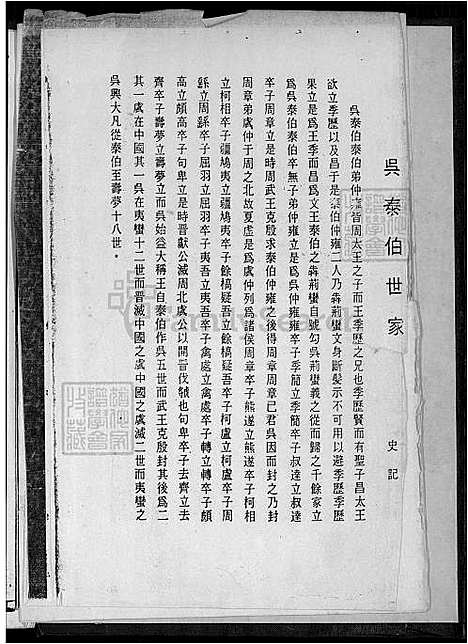 吳泰伯世家
史記
吳泰伯泰伯弟仲雍皆周太王之子而王季歷之兄也季歷賢而有聖子昌太王
欲立季歷以及昌于是泰伯仲雍二人乃犇荊蠻文身斷髮示不可用以避季歷季歷
果立是爲王季而昌爲文王泰伯之犇荊蠻自號勾吳荊蠻義之從而歸之千餘家立
爲吳泰伯泰伯卒無子弟仲雍立是爲吳仲雍仲雍卒子季簡立季簡卒子叔達立叔達
卒子周章立是時周武王克殷求泰伯仲雍之後得周章周章已君吳因而封之乃封
周章弟虞仲于周之北故夏虛是爲虞仲列爲諸侯周章卒子熊遂立熊遂卒子柯相
立柯相卒子彊鳩夷立彊鳩夷卒子餘橋疑吾立餘橋疑吾卒子柯盧立柯盧卒子周
繇立周繇卒子屈羽立屈羽卒子夷吾立夷吾卒子禽處立禽處卒子轉立轉卒子頗
高立頗高卒子句卑立是時晋獻公滅周北虞公以開晋伐虢也句卑卒子去齊立去
齊卒子壽夢立壽夢立而吳始益大稱王自泰伯作吳五世而武王克殷封其後爲二
其一虞在中國其一吳在夷蠻十二世而晋滅中國之虞中國之虞滅二世而夷蠻之
吳興大凡從泰伯至壽夢十八世。